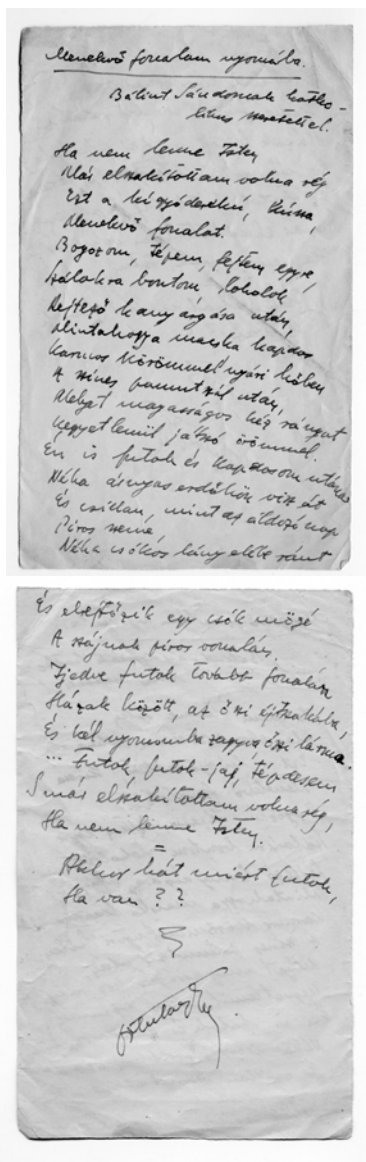 Menekvő fonalam nyomába.
Bálint Sándornak katho-
likus szeretettel.
Ha nem lenne Isten
Már elszakítottam volna rég
Ezt a kígyóderekú, kusza,
Menekvő fonalat.
Bogozom, tépem, fejtem egyre,
Szálakra bontom, loholok
Rejtező kanyargása után,
Mintahogya macska kapdos
Karmos körömmel nyári hőben
A színes pamutszál után,
Melyet magasságos kéz rángat
Kegyetlenül játszó örömmel.
Én is futok és kapdosom utána
Néha árnyas erdőkön visz át
És csillan, mint az áldozó nap
Piros szeme,
Néha csókos lány elébe ránt
És elrejtőzik egy csók mögé
A szájnak piros vonalán.
Ijedve futok tovább fonalam
Házak között, az őszi éjszakába,
És kél nyomomba zagyva őszi lárma.
... Futok, futok - jaj, tépdesem
S már elszakítottam volna rég,
Ha nem lenne Isten.
=
Akkor hát miért futok,
Ha van ? ?